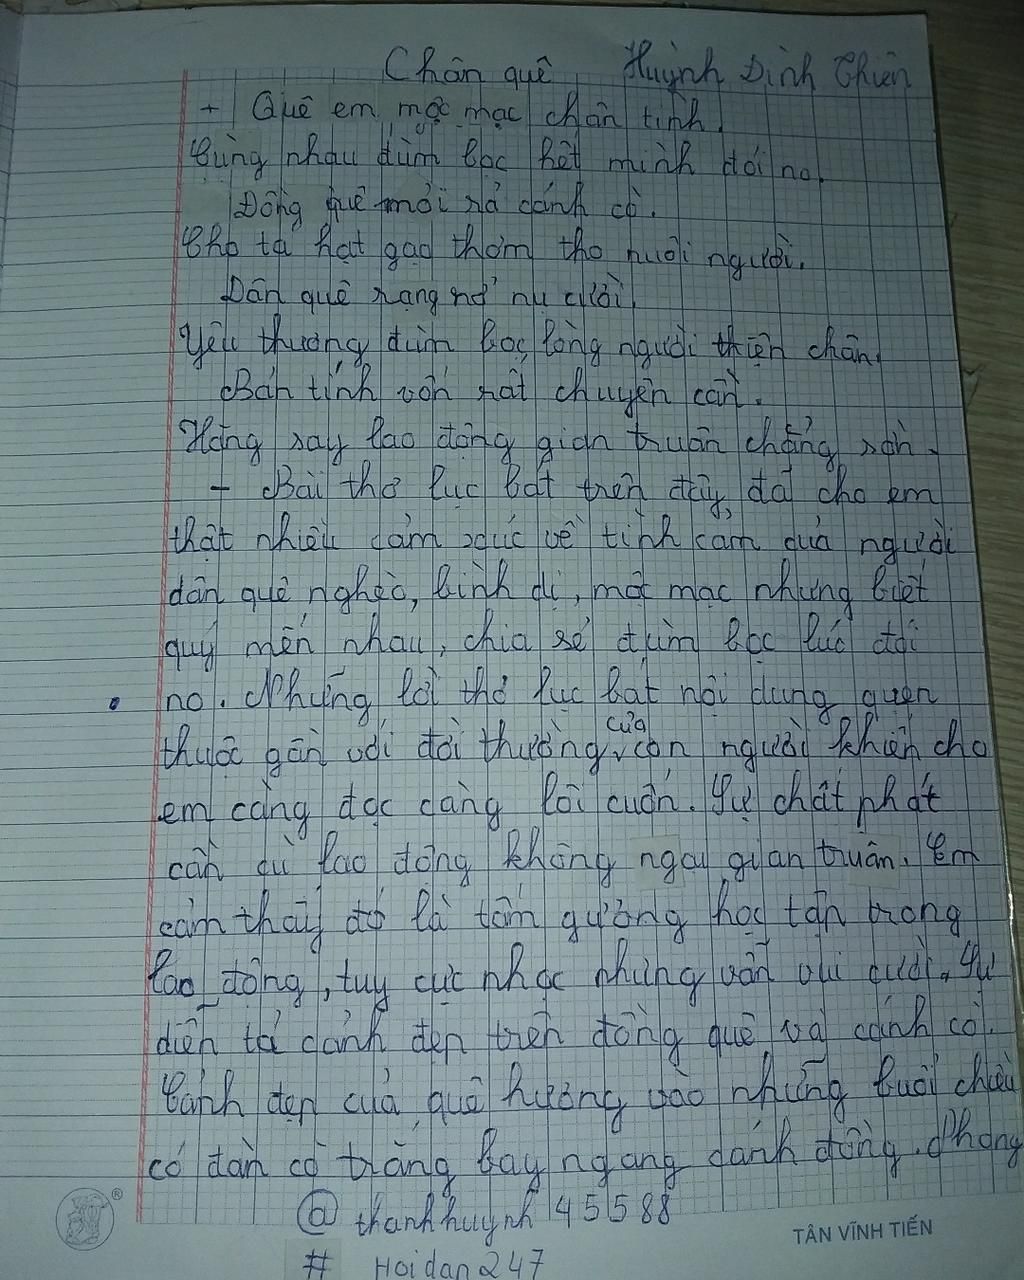 Chân quê Huỳnh Đình Chiến
+ Quê em mộc mạc chân tình.
Cùng nhau đùm bọc hết mình đói no.
Đồng quê mỏi rả cánh cò.
Cho ta hạt gạo thơm tho nuôi người.
Dân quê rạng nở nụ cười.
Yêu thương đùm bọc lòng người thiện chân.
Bản tính vốn rất chuyên cần.
Hăng say lao động gian truân chẳng sờn.
- Bài thơ lục bát trên đây, đã cho em
thật nhiều cảm xúc về tình cảm của người
dân quê nghèo, bình dị, mộc mạc nhưng biết
quý mến nhau, chia sẻ đùm bọc lúc đói
no. Những lời thơ lục bát nội dung quen
thuộc gần với đời thường của con người khiến cho
em càng đọc càng lôi cuốn. Sự chất phát
cần cù lao động không ngại gian truân. Em
cảm thấy đó là tấm gương học tập trong
lao động, tuy cực nhọc nhưng vẫn vui cười. Sự
diễn tả cảnh đẹp trên đồng quê và cánh cò.
Cảnh đẹp của quê hương vào những buổi chiều
có đàn cò trắng bay ngang cánh đồng. Phong
@ thanhhuynh45588
# Hoidan247
TÂN VĨNH TIẾN
®